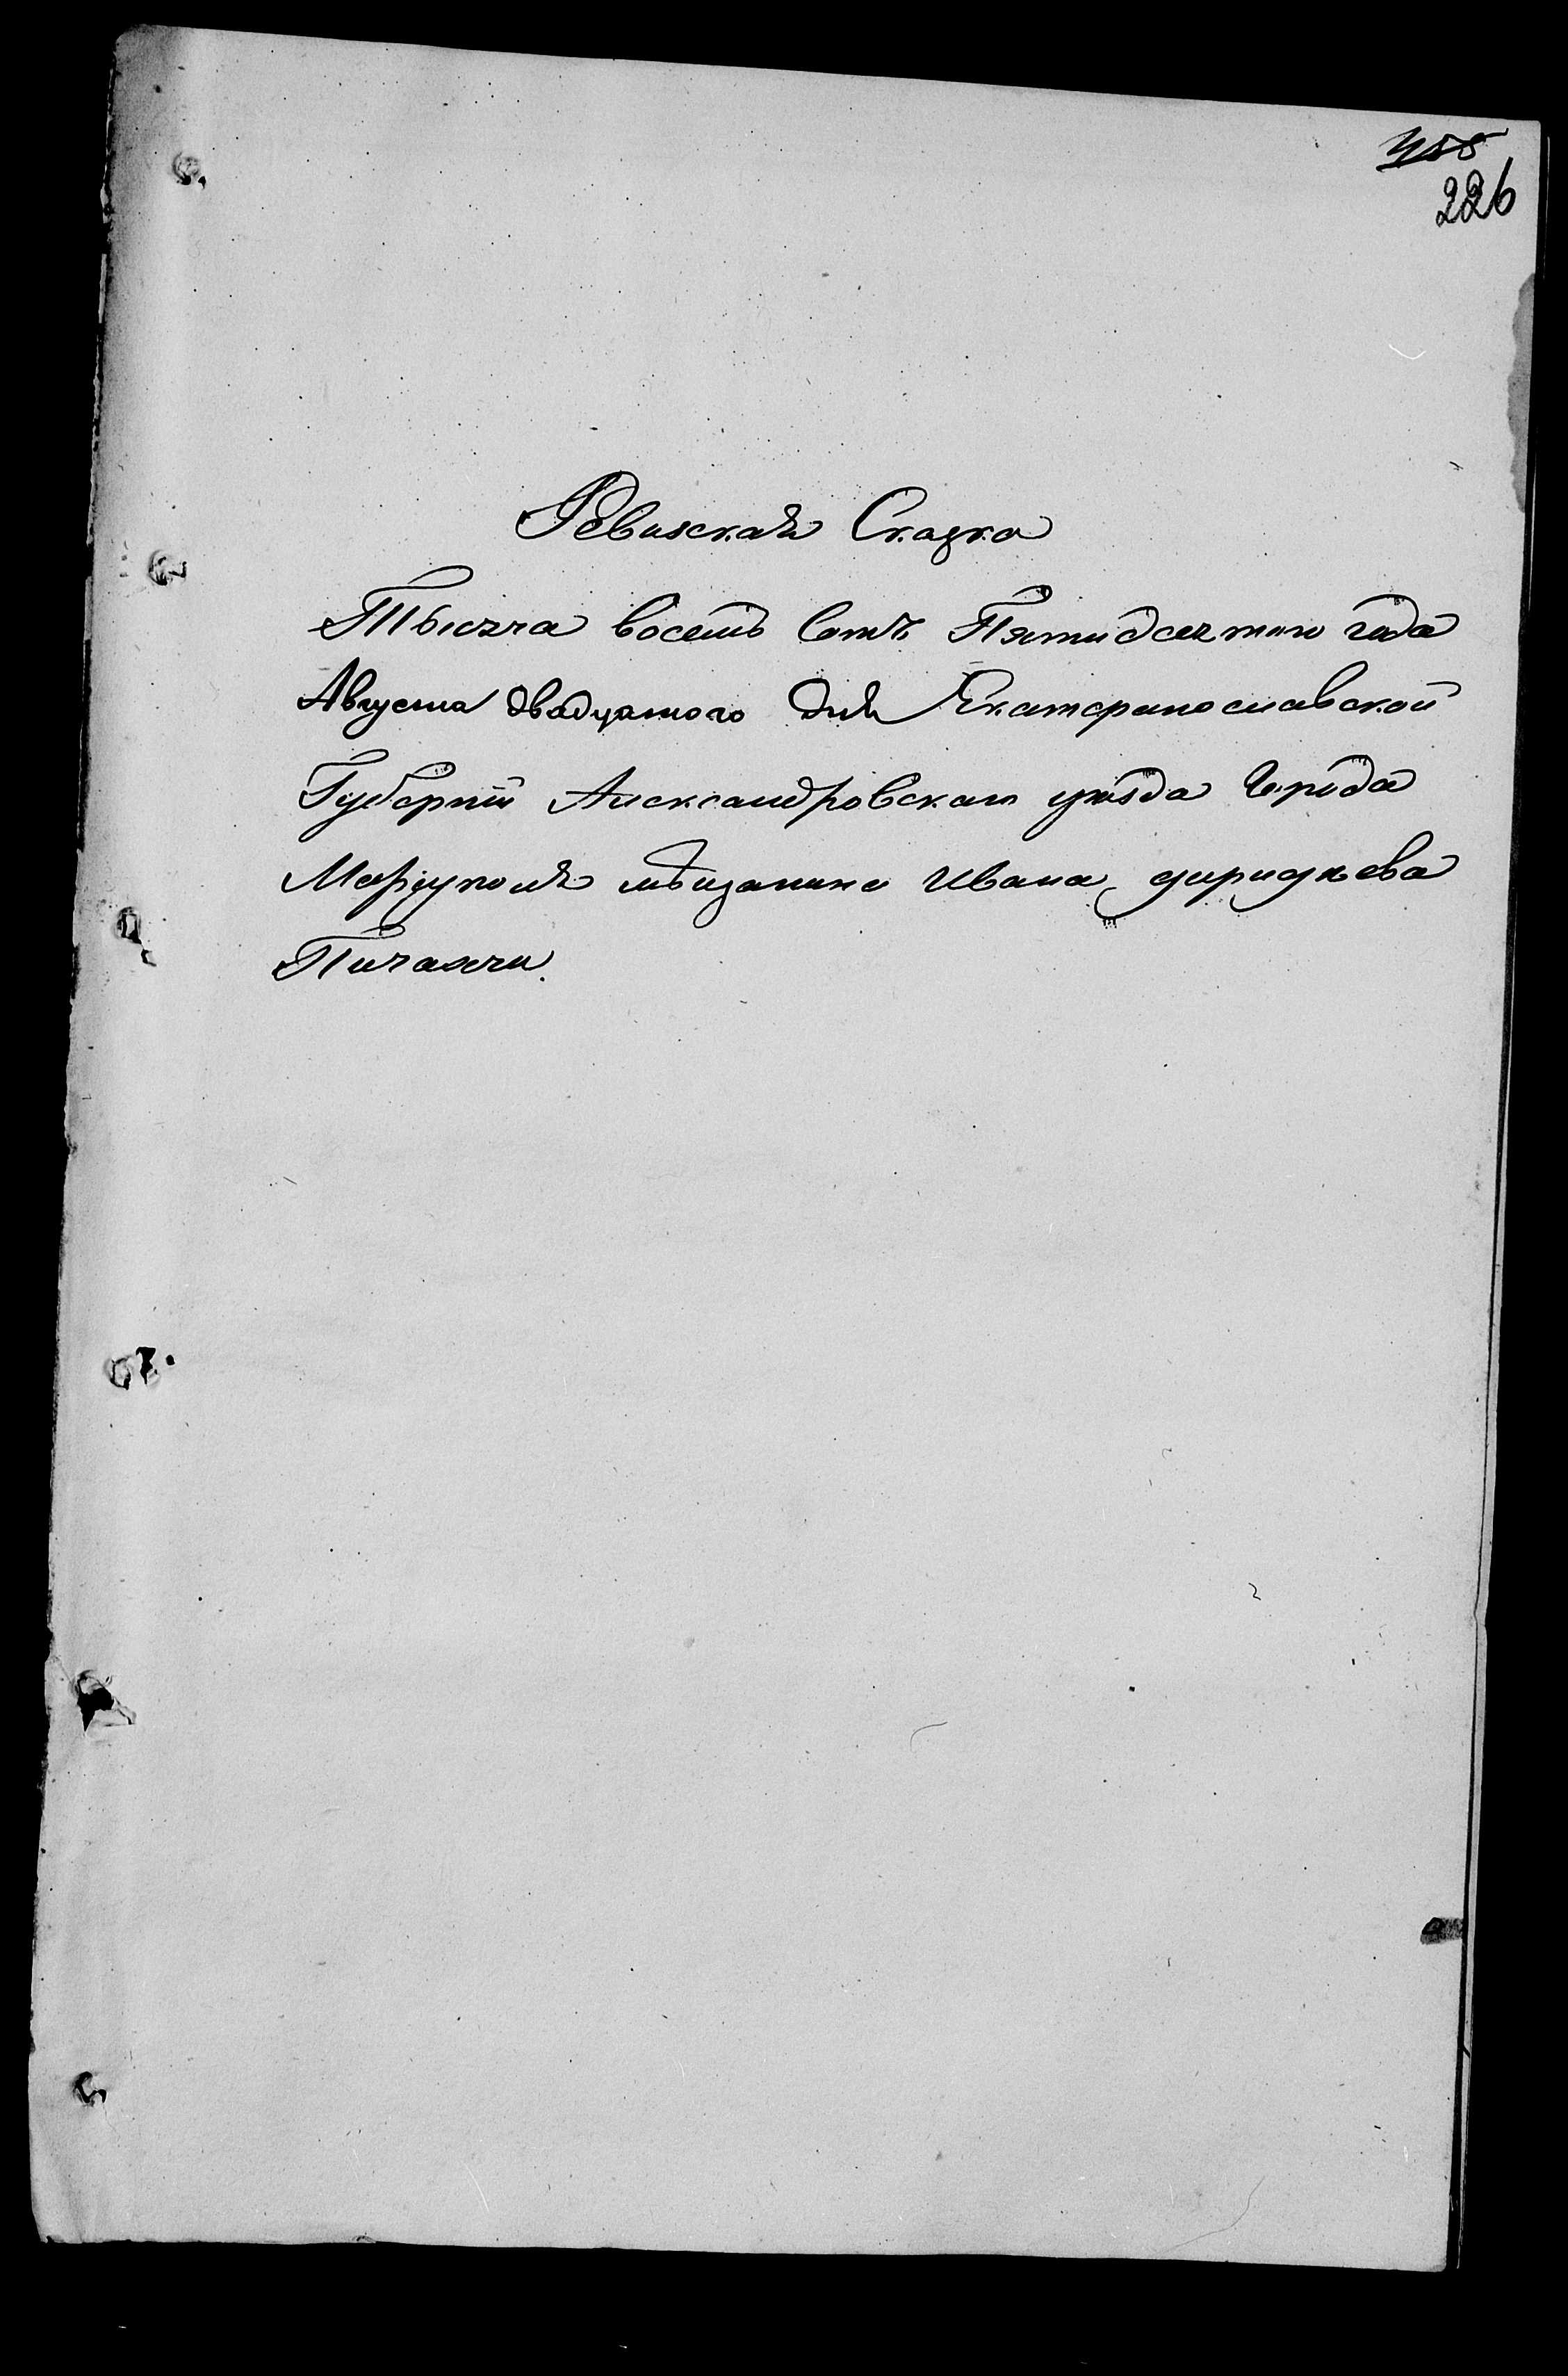 455
226
Ревизская Сказка
Тысяча восемь Сотъ Пятидесятого года
Августа двадцатого дня Екатеринославской
Губерніи Александровскаго уѣзда Города
Маріуполя мѣщанина Ивана